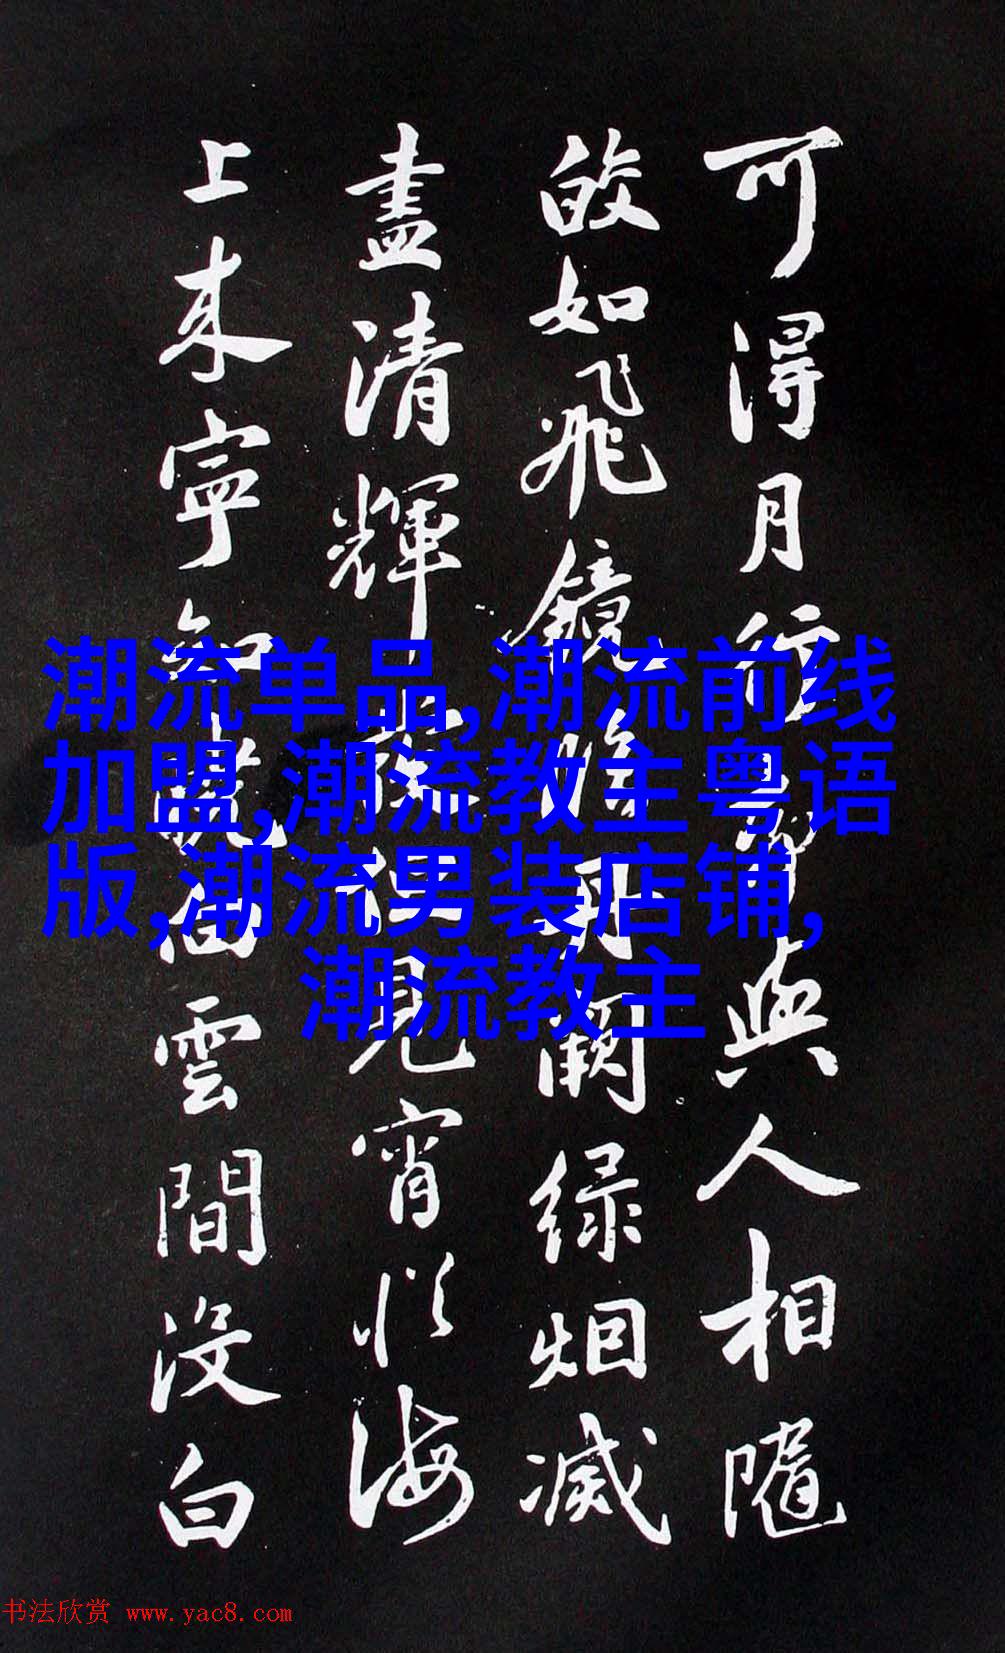 可得月行却與人相隨
皎如飛鏡临丹闕绿烟滅
盡清輝發但見宵從海
上来寧知曉向雲間没白
潮流单品,潮流前线
加盟,潮流教主粤语
版,潮流男装店铺,
潮流教主
书法欣赏 www.yac8.com